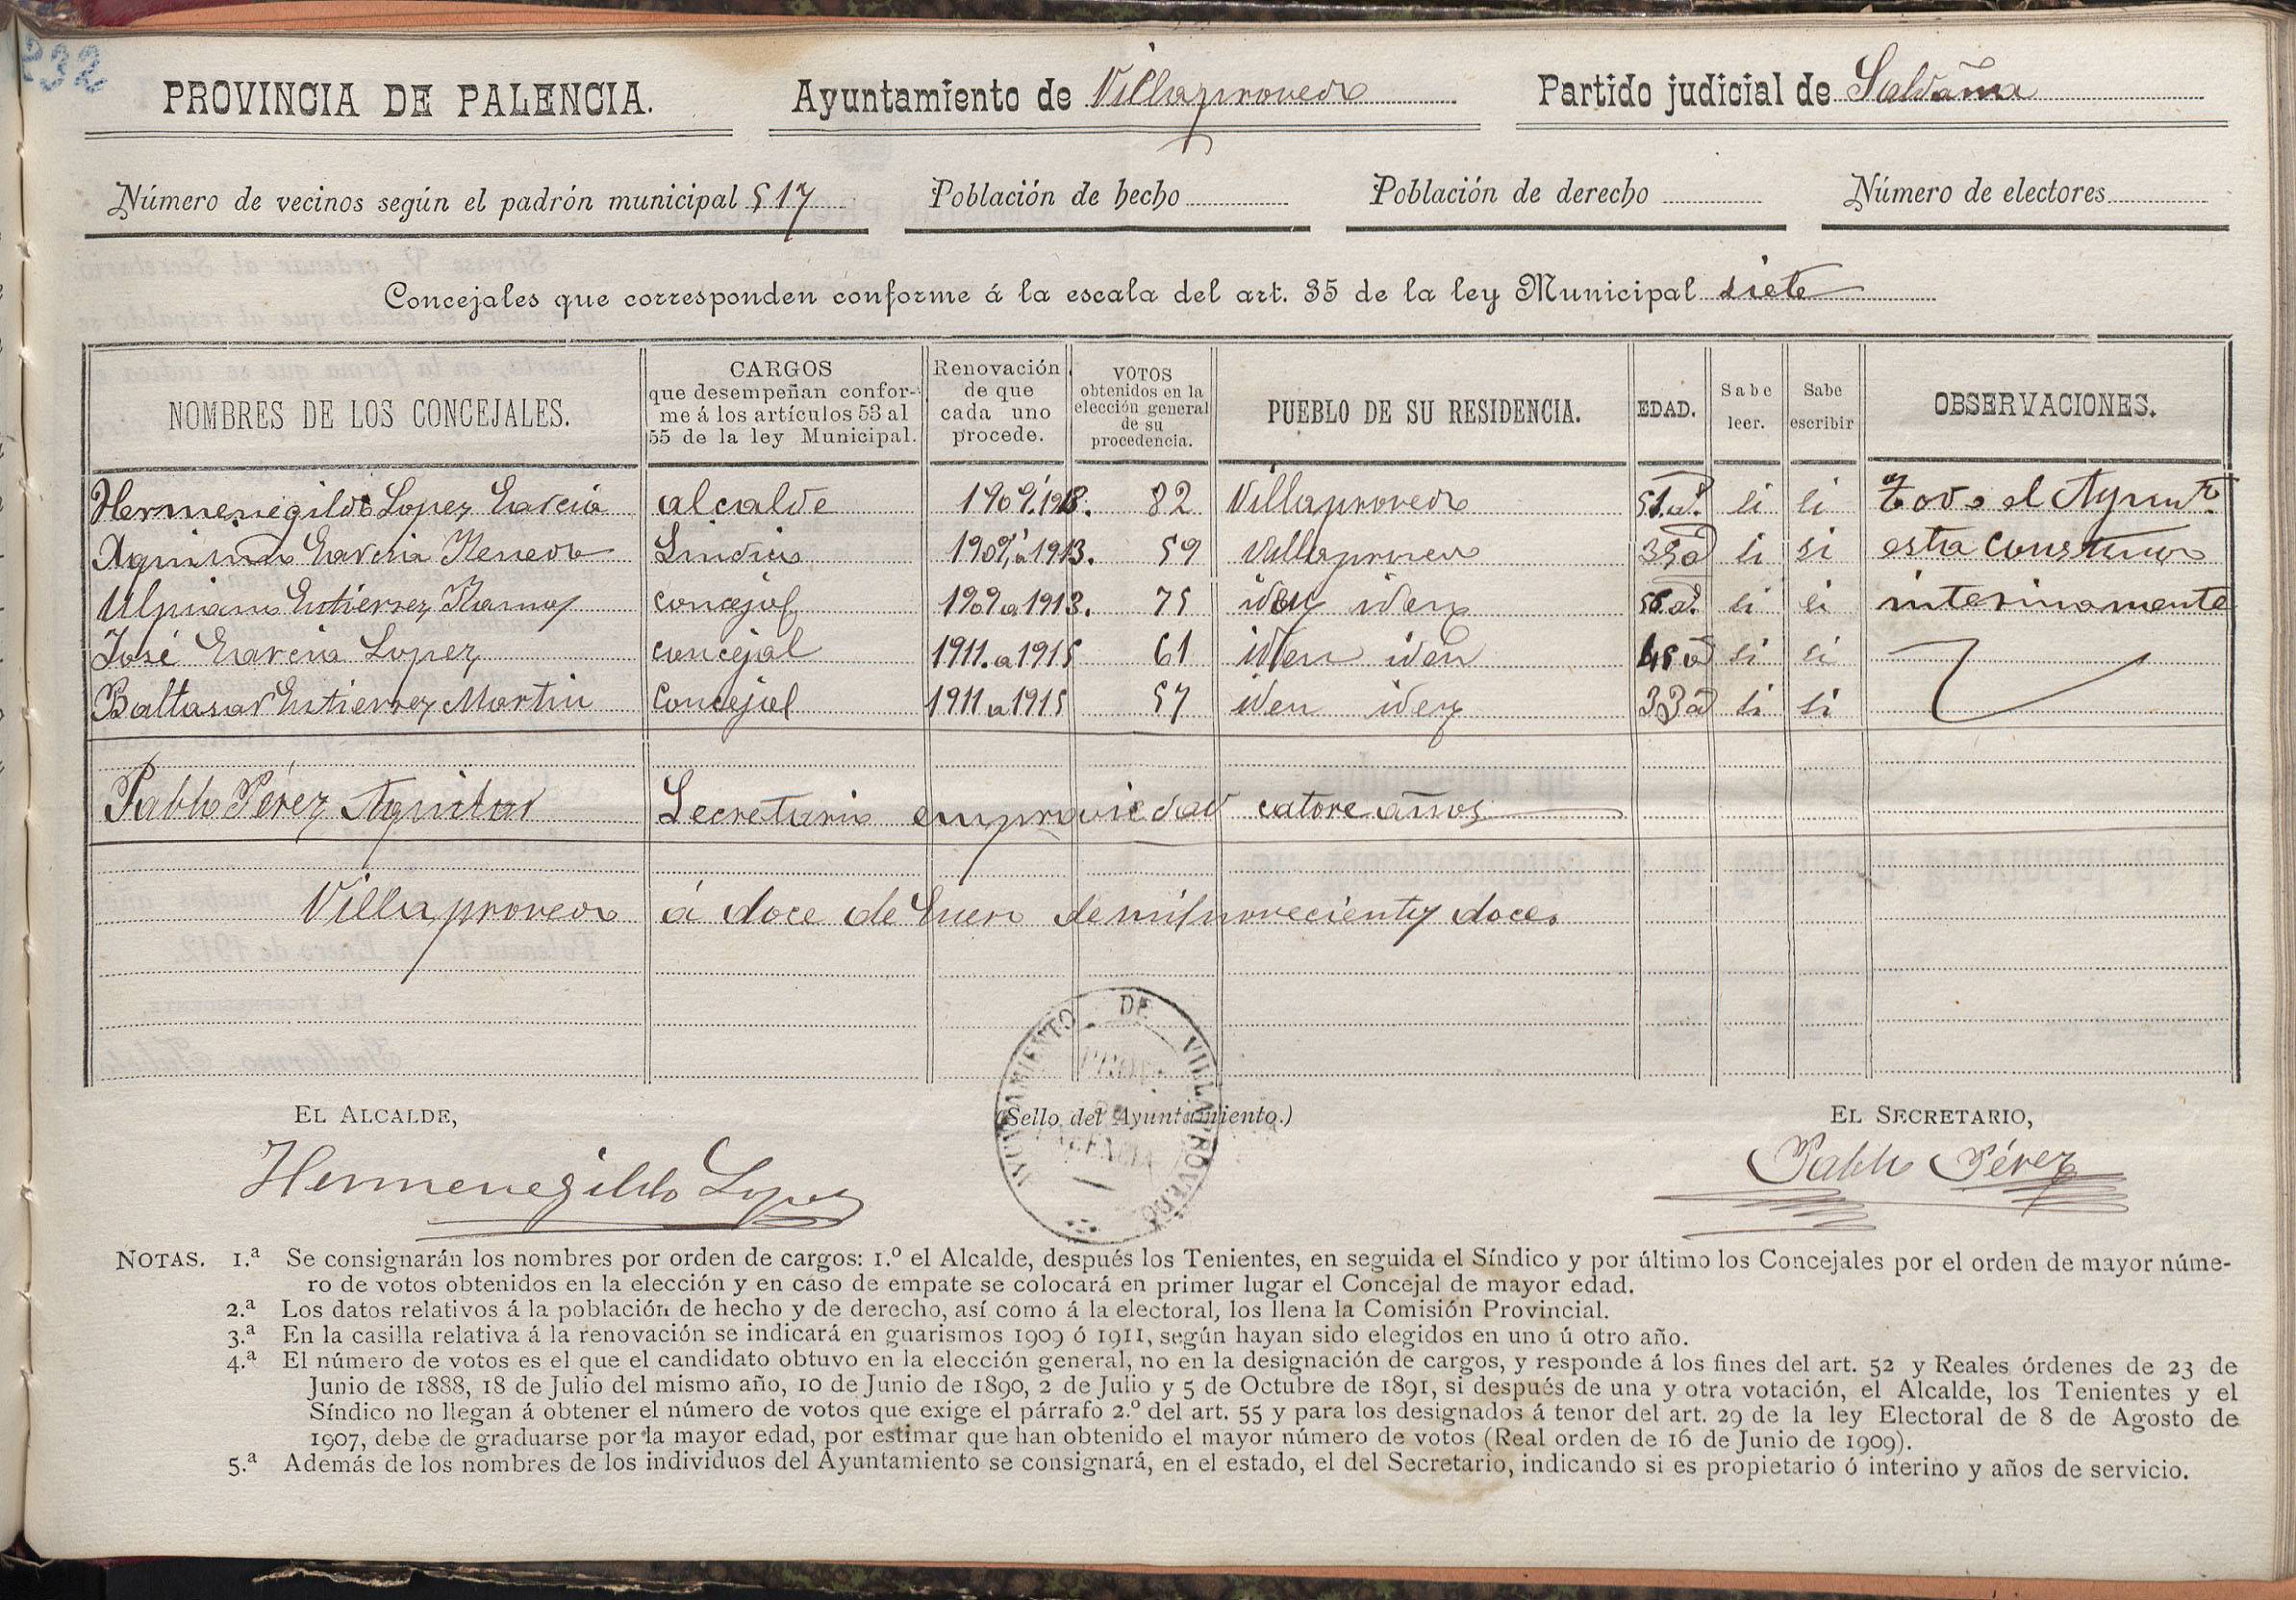 232
PROVINCIA DE PALENCIA.
Ayuntamiento de Villaprovedo
Partido judicial de Saldaña
Número de vecinos según el padrón municipal 517
Población de hecho
Población de derecho
Número de electores
Concejales que corresponden conforme á la escala del art. 35 de la ley Municipal siete
NOMBRES DE LOS CONCEJALES.
CARGOS
que desempeñan confor-
me á los artículos 53 al
55 de la ley Municipal.
Renovación
de que
cada uno
procede.
VOTOS
obtenidos en la
elección general
de su
procedencia.
PUEBLO DE SU RESIDENCIA.
EDAD.
Sabe
leer.
Sabe
escribir
OBSERVACIONES.
Hermenegildo Lopez Garcia alcalde 1909. 1913. 82 Villaprovedo 51.a. si si Todo el Ayunto.
Garcia Sindico 1909. a 1913. 59 Villaprovedo si si esta constituido
Ulpiano Gutierrez Ramos concejal 1909 a 1913. 75 iden iden si si interinamente
José Garcia Lopez concejal 1911. a 1915 61 iden iden 45 a si si
Baltasar Gutierrez Martin Concejal 1911 a 1915 57 iden iden 33 a si si
Pablo Pérez Aguilar Secretario en propiedad catorce años
Villaprovedo á doce de Enero de mil novecientos doce.
AYUNTAMIENTO DE VILLAPROVEDO
PROV.
DE
PALENCIA
EL ALCALDE,
(Sello del Ayuntamiento.)
EL SECRETARIO,
Hermenegildo Lopez
Pablo Pérez
NOTAS. 1.ª Se consignarán los nombres por orden de cargos: 1.º el Alcalde, después los Tenientes, en seguida el Síndico y por último los Concejales por el orden de mayor núme-
ro de votos obtenidos en la elección y en caso de empate se colocará en primer lugar el Concejal de mayor edad.
2.ª Los datos relativos á la población de hecho y de derecho, así como á la electoral, los llena la Comisión Provincial.
3.ª En la casilla relativa á la renovación se indicará en guarismos 1909 ó 1911, según hayan sido elegidos en uno ú otro año.
4.ª El número de votos es el que el candidato obtuvo en la elección general, no en la designación de cargos, y responde á los fines del art. 52 y Reales órdenes de 23 de
Junio de 1888, 18 de Julio del mismo año, 10 de Junio de 1890, 2 de Julio y 5 de Octubre de 1891, si después de una y otra votación, el Alcalde, los Tenientes y el
Síndico no llegan á obtener el número de votos que exige el párrafo 2.º del art. 55 y para los designados á tenor del art. 29 de la ley Electoral de 8 de Agosto de
1907, debe de graduarse por la mayor edad, por estimar que han obtenido el mayor número de votos (Real orden de 16 de Junio de 1909).
5.ª Además de los nombres de los individuos del Ayuntamiento se consignará, en el estado, el del Secretario, indicando si es propietario ó interino y años de servicio.